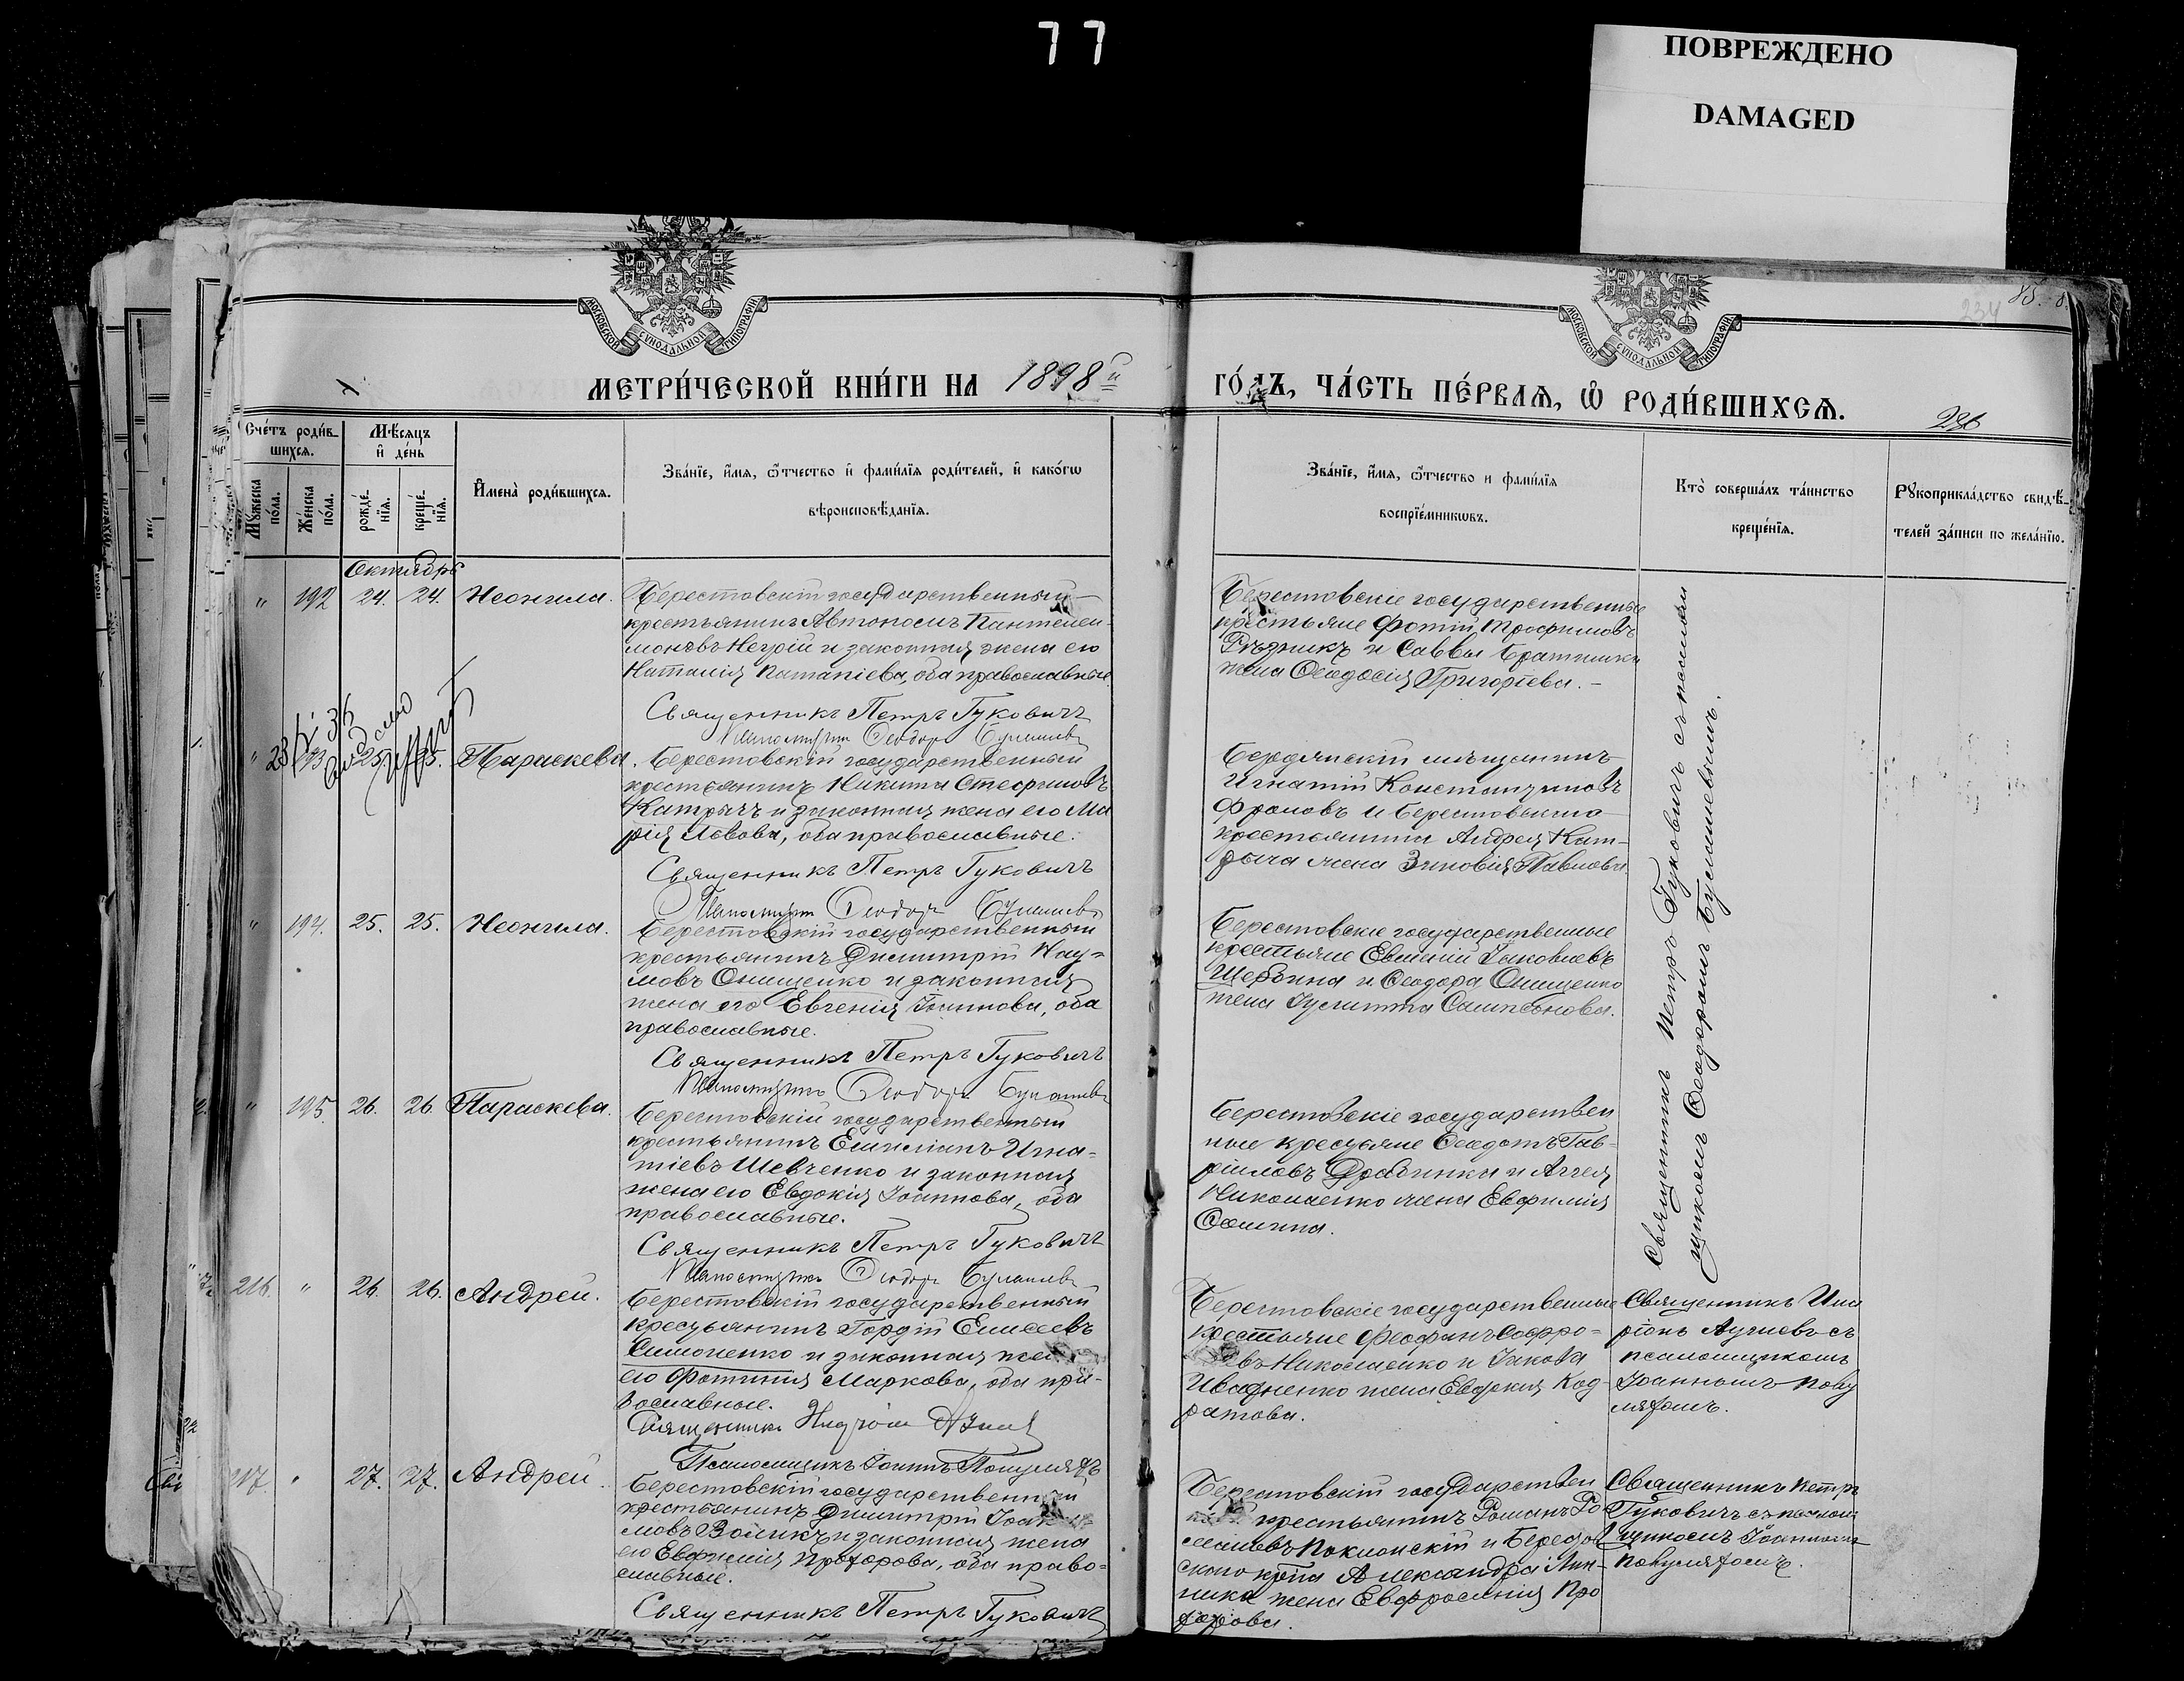 77
ПОВРЕЖДЕНО
DAMAGED
МОСКОВСКОЙ СѴНОДАЛЬНОЙ ТИПОГРАФІИ
МОСКОВСКОЙ СѴНОДАЛЬНОЙ ТИПОГРАФІИ
234
МЕТРИ́ЧЕСКОЙ КНИ́ГИ НА 1898й
ГО́ДЪ, ЧА́СТЬ ПЕ́РВАѦ, Ѡ҆ РОДИ́ВШИХСѦ.
236
Сче́тъ роди́в-
шихсѧ.
Мѣ́сѧцъ
и҆ де́нь
Мꙋ́жеска
по́ла.
Же́нска
по́ла.
рожде́-
нїѧ.
креще́-
нїѧ.
И҆мена̀ роди́вшихсѧ.
Зва́нїе, и҆́мѧ, ѻ҆́тчество и҆ фами́лїѧ роди́телей, и҆ како́гѡ
вѣроисповѣ́данїѧ.
Зва́нїе, и҆́мѧ, ѻ҆́тчество и фами́лїѧ
воспрїе́мникѡвъ.
Кто̀ соверша́лъ та́инство
креще́нїѧ.
Рꙋкоприкла́дство свидѣ́-
телей за́писи по жела́нїю.
Октябрь
" 192 24. 24. Неонила.
Берестовскій государственный
крестьянинъ Автономъ Пантелеи-
моновъ Негрій и законная жена его
Наталія Потапіева, оба православные
Священникъ Петръ Гуковичъ
Псаломщикъ Ѳеодоръ
Берестовскіе государственные
крестьяне Фотій Трофимовъ
Рѣзникъ и Саввы Братишки
жена Ѳеодосія Григоріева.
Священникъ Петръ Гуковичъ съ псалом
щикомъ Ѳеодоромъ
" 193 25. 25. Параскева.
Берестовскій государственный
крестьянинъ Никита Стефановъ
Катричъ и законная жена его Ма
рія Львова, оба православные.
Священникъ Петръ Гуковичъ
Псаломщикъ Ѳеодоръ
Бердянскій мѣщанинъ
Игнатій Константиновъ
Фроловъ и Берестовскаго
крестьянина Андрея Кат-
рыча жена Зиновія Павлова
" 194. 25. 25. Неонила.
Берестовскій государственный
крестьянинъ Димитрій Нау-
мовъ Онищенко и законная
жена его Евгенія Іоаннова, оба
православные.
Священникъ Петръ Гуковичъ
Псаломщикъ Ѳеодоръ
Берестовскіе государственные
крестьяне Евгеній Іаковлевъ
Щербина и Ѳеодора Онищенко
жена Іулитта Сампсонова.
" 195. 26. 26. Параскева.
Берестовскій государственный
крестьянинъ Емиліанъ Игна-
тіевъ Шевченко и законная
жена его Евдокія Іоаннова, оба
православные.
Священникъ Петръ Гуковичъ
Псаломщикъ Ѳеодоръ
Берестовскіе государствен
ные кресьяне Ѳеодотъ Гав-
ріиловъ Дробинка и Аггея
Николаенко жена Евфимія
Ѳомина.
216. " 26. 26. Андрей.
Берестовскій государственный
кресьянинъ Гордій Елисеевъ
Симоненко и законная же
его Фотинія Маркова, оба пра-
вославные.
Священникъ
Псаломщикъ Іоаннъ
Берестовскіе государственные
крестьяне Феофанъ Софро-
въ Николаенко и Іакова
Ивахненко жена Евдокія Код-
ратова.
Священникъ Ила
ріонъ съ
псаломщикомъ
Іоанномъ
217. " 27. 27. Андрей.
Берестовскій государственный
крестьянинъ Димитрій Іоаки-
мовъ Воликъ и законная жена
его Евфимія Прохорова, оба право-
славные.
Священникъ Петръ Гуковичъ
Берестовскій государствен
крестьянинъ Романъ Ро
мановъ Поклонскій и Берестов
скаго крна Александра Лин-
ника жена Евфросинія Про
хорова.
Священникъ Петръ
Гуковичъ съ псалом
щикомъ Іоанномъ